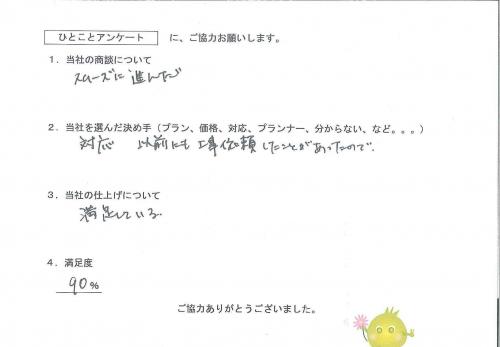 ひとことアンケート に、ご協力お願いします。
1．当社の商談について
スムーズに進んだ
2．当社を選んだ決め手（プラン、価格、対応、プランナー、分からない、など。。。）
対応 以前にも工事依頼したことがあったので.
3．当社の仕上げについて
満足している.
4．満足度
90%
ご協力ありがとうございました。